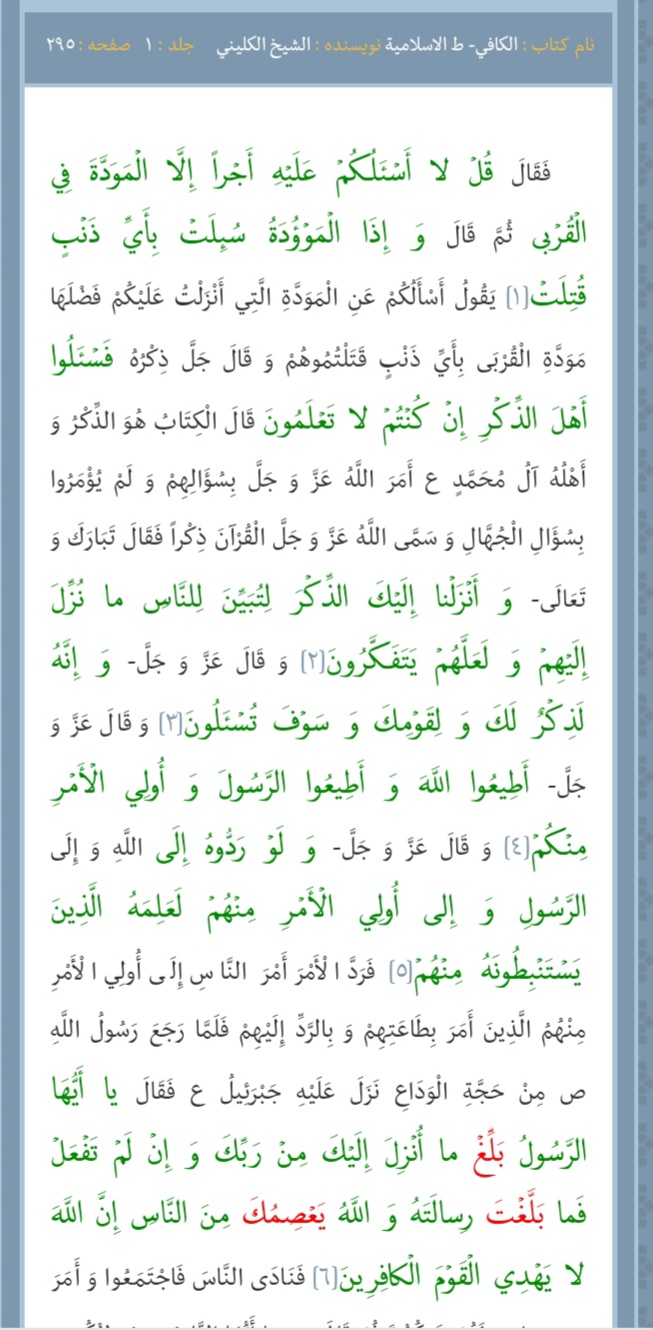 نام کتاب : الکافي- ط الاسلامیة نویسنده : الشیخ الکلیني جلد : ١ صفحه : ٢٩٥
فَقَالَ قُلْ لا أَسْئَلُكُمْ عَلَيْهِ أَجْراً إِلَّا الْمَوَدَّةَ فِي
الْقُرْبى ثُمَّ قَالَ وَ إِذَا الْمَوْؤُدَةُ سُئِلَتْ بِأَيِّ ذَنْبٍ
قُتِلَتْ[١] يَقُولُ أَسْأَلُكُمْ عَنِ الْمَوَدَّةِ الَّتِي أَنْزَلْتُ عَلَيْكُمْ فَضْلَهَا
مَوَدَّةِ الْقُرْبَى بِأَيِّ ذَنْبٍ قَتَلْتُمُوهُمْ وَ قَالَ جَلَّ ذِكْرُهُ فَسْئَلُوا
أَهْلَ الذِّكْرِ إِنْ كُنْتُمْ لا تَعْلَمُونَ قَالَ الْكِتَابُ هُوَ الذِّكْرُ وَ
أَهْلُهُ آلُ مُحَمَّدٍ ع أَمَرَ اللَّهُ عَزَّ وَ جَلَّ بِسُؤَالِهِمْ وَ لَمْ يُؤْمَرُوا
بِسُؤَالِ الْجُهَّالِ وَ سَمَّى اللَّهُ عَزَّ وَ جَلَّ الْقُرْآنَ ذِكْراً فَقَالَ تَبَارَكَ وَ
تَعَالَى- وَ أَنْزَلْنا إِلَيْكَ الذِّكْرَ لِتُبَيِّنَ لِلنَّاسِ ما نُزِّلَ
إِلَيْهِمْ وَ لَعَلَّهُمْ يَتَفَكَّرُونَ[٢] وَ قَالَ عَزَّ وَ جَلَّ- وَ إِنَّهُ
لَذِكْرٌ لَكَ وَ لِقَوْمِكَ وَ سَوْفَ تُسْئَلُونَ[٣] وَ قَالَ عَزَّ وَ
جَلَّ- أَطِيعُوا اللَّهَ وَ أَطِيعُوا الرَّسُولَ وَ أُولِي الْأَمْرِ
مِنْكُمْ[٤] وَ قَالَ عَزَّ وَ جَلَّ- وَ لَوْ رَدُّوهُ إِلَى اللَّهِ وَ إِلَى
الرَّسُولِ وَ إِلى أُولِي الْأَمْرِ مِنْهُمْ لَعَلِمَهُ الَّذِينَ
يَسْتَنْبِطُونَهُ مِنْهُمْ[٥] فَرَدَّ الْأَمْرَ أَمْرَ النَّاسِ إِلَى أُولِي الْأَمْرِ
مِنْهُمُ الَّذِينَ أَمَرَ بِطَاعَتِهِمْ وَ بِالرَّدِّ إِلَيْهِمْ فَلَمَّا رَجَعَ رَسُولُ اللَّهِ
ص مِنْ حَجَّةِ الْوَدَاعِ نَزَلَ عَلَيْهِ جَبْرَئِيلُ ع فَقَالَ يا أَيُّهَا
الرَّسُولُ بَلِّغْ ما أُنْزِلَ إِلَيْكَ مِنْ رَبِّكَ وَ إِنْ لَمْ تَفْعَلْ
فَما بَلَّغْتَ رِسالَتَهُ وَ اللَّهُ يَعْصِمُكَ مِنَ النَّاسِ إِنَّ اللَّهَ
لا يَهْدِي الْقَوْمَ الْكافِرِينَ[٦] فَنَادَى النَّاسَ فَاجْتَمَعُوا وَ أَمَرَ